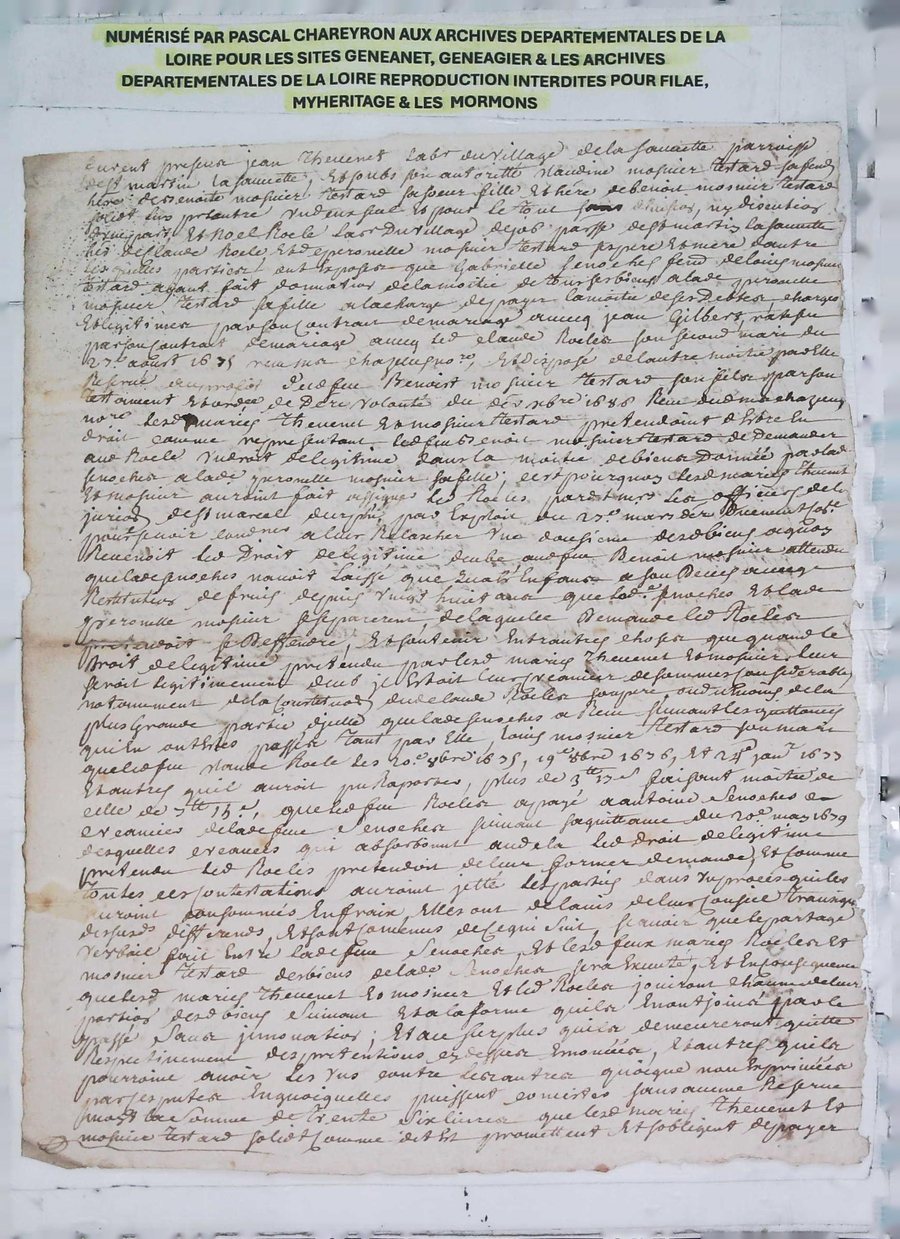 NUMÉRISÉ PAR PASCAL CHAREYRON AUX ARCHIVES DEPARTEMENTALES DE LA
LOIRE POUR LES SITES GENEANET, GENEAGIER & LES ARCHIVES
DEPARTEMENTALES DE LA LOIRE REPRODUCTION INTERDITES POUR FILAE,
MYHERITAGE & LES MORMONS
furent presens jean Thevenet Labr du village de la sauvette parroisse
de st martin la sauvette, Et soubs son autoritte claudine mosnier testard sa femme
here de benoite mosnier testard sa soeur fille Et here de benoit mosnier testard
solidt un pour lautre un deux seul Et pour le tout sans division, ny discution
dune part, Et Noel Roele Labr du village de job parsse de st martin la sauvette
fils de claude Roele, Et de peronelle mosnier testard ses pere Et mere dautre
Lesquelles parties ont exposé que Gabrielle Genoches feme de louis mosnier
testard ayant fait donnation de la moitie de tous ses biens a lade peronelle
mosnier testard sa fille a la charge de payer la moitie de ses Debtes charges
Et legitimes par son contrant de mariage avecq jean Gilbert, ratifié
par son contract de mariage avecq led claude Roeles son second mari du
27e aoust 1675 Receu me chazelle nore, Et disposé de lautre moitie par Elle
Reservé au profit dud feu Benoist mosnier testard son fils par son
testament Et ordce de Dere volonté du decembre 1686 Receu dud me chazelle
nore lesd mariés Thevenet Et mosnier testard pretendoint destre En
droit comme representant led feu benoit mosnier testard de demander
aud Roele un droit de legitime dans la moitie des biens Donnée par lad
Genoches a lade peronelle mosnier sa fille, cest pourquoy lesd mariés Thevenet
Et mosnier auroint fait assigner led Roeles pardevant mrs les officiers de la
juridon de st marcel durphé par Exploit du 27e mars der
pour se voir condner a leur Relascher Une douzieme desd biens a quoy
Revenoit led Droit de legitime deub aud feu Benoit mosnier attendu
que lade Genoches navoit Laissé que quatre Enfans a son Deces avecq
Restitution de fruis depuis vingt huit ans que lade Genoches Et lade
peronelle mosnier se separerent, de laquelle Demande led Roeles
pretendoit se Deffendre, Et soutenir Entrautres choses que quand le
Droit de legitime pretendu par lesd mariés Thevenet Et mosnier leur
seroit legitimement deub il Estoit leur creancier de sommes considerables
notamment de la constituon dud claude Roeles son pere ou du moins de la
plus Grande partie dicelle que lade Genoches a Receu suivant les quittances
quen ont Esté passés tant par Elle Louis mosnier testard son mari
que led feu claude Roele les 20e 8bre 1675, 19e 8bre 1676, Et 24 janr 1677
Et autres quil auroit pu Raporter, plus de 3tt 17s faisant moitie de
celle de 7tt 15s que led feu Roeles a payé a antoine Genoches
creancier de lade feue Genoches suivant sa quittance du 20e may 1679
desquelles creances qui absorbent au dela led droit de legitime
pretendu led Roeles pretendoit de leur former demande, Et comme
toutes ces contestations auroint jetté les parties dans un procés quils
auroint consommés En frais, Elles ont de lavis de leur conseil transigé
desd differends, Et sont convenues de ce qui suit, scavoir que le partage
verbail fait Entre lade feue Genoches, Et lesd feux mariés Roeles Et
mosnier testard des biens de lade Genoches sera Executé, Et En consequence
que lesd mariés Thevenet Et mosnier Et led Roeles joüiront chacun de leur
portion desd biens suivant Et a la forme quils En ont joüis par le
passé sans innovation; Et au surplus quils demeureront quitte
Respectivement des pretentions cy dessus Enoncées, Et autres quils
pourroint avoir les Uns contre les autres quoique non Exprimées
par ses putes En quoi quelles puissent consister sans aucune Reserve
moyt la Somme de trente six livres que lesd mariés Thevenet Et
mosnier testard solidt comme dit Est promettent Et sobligent de payer